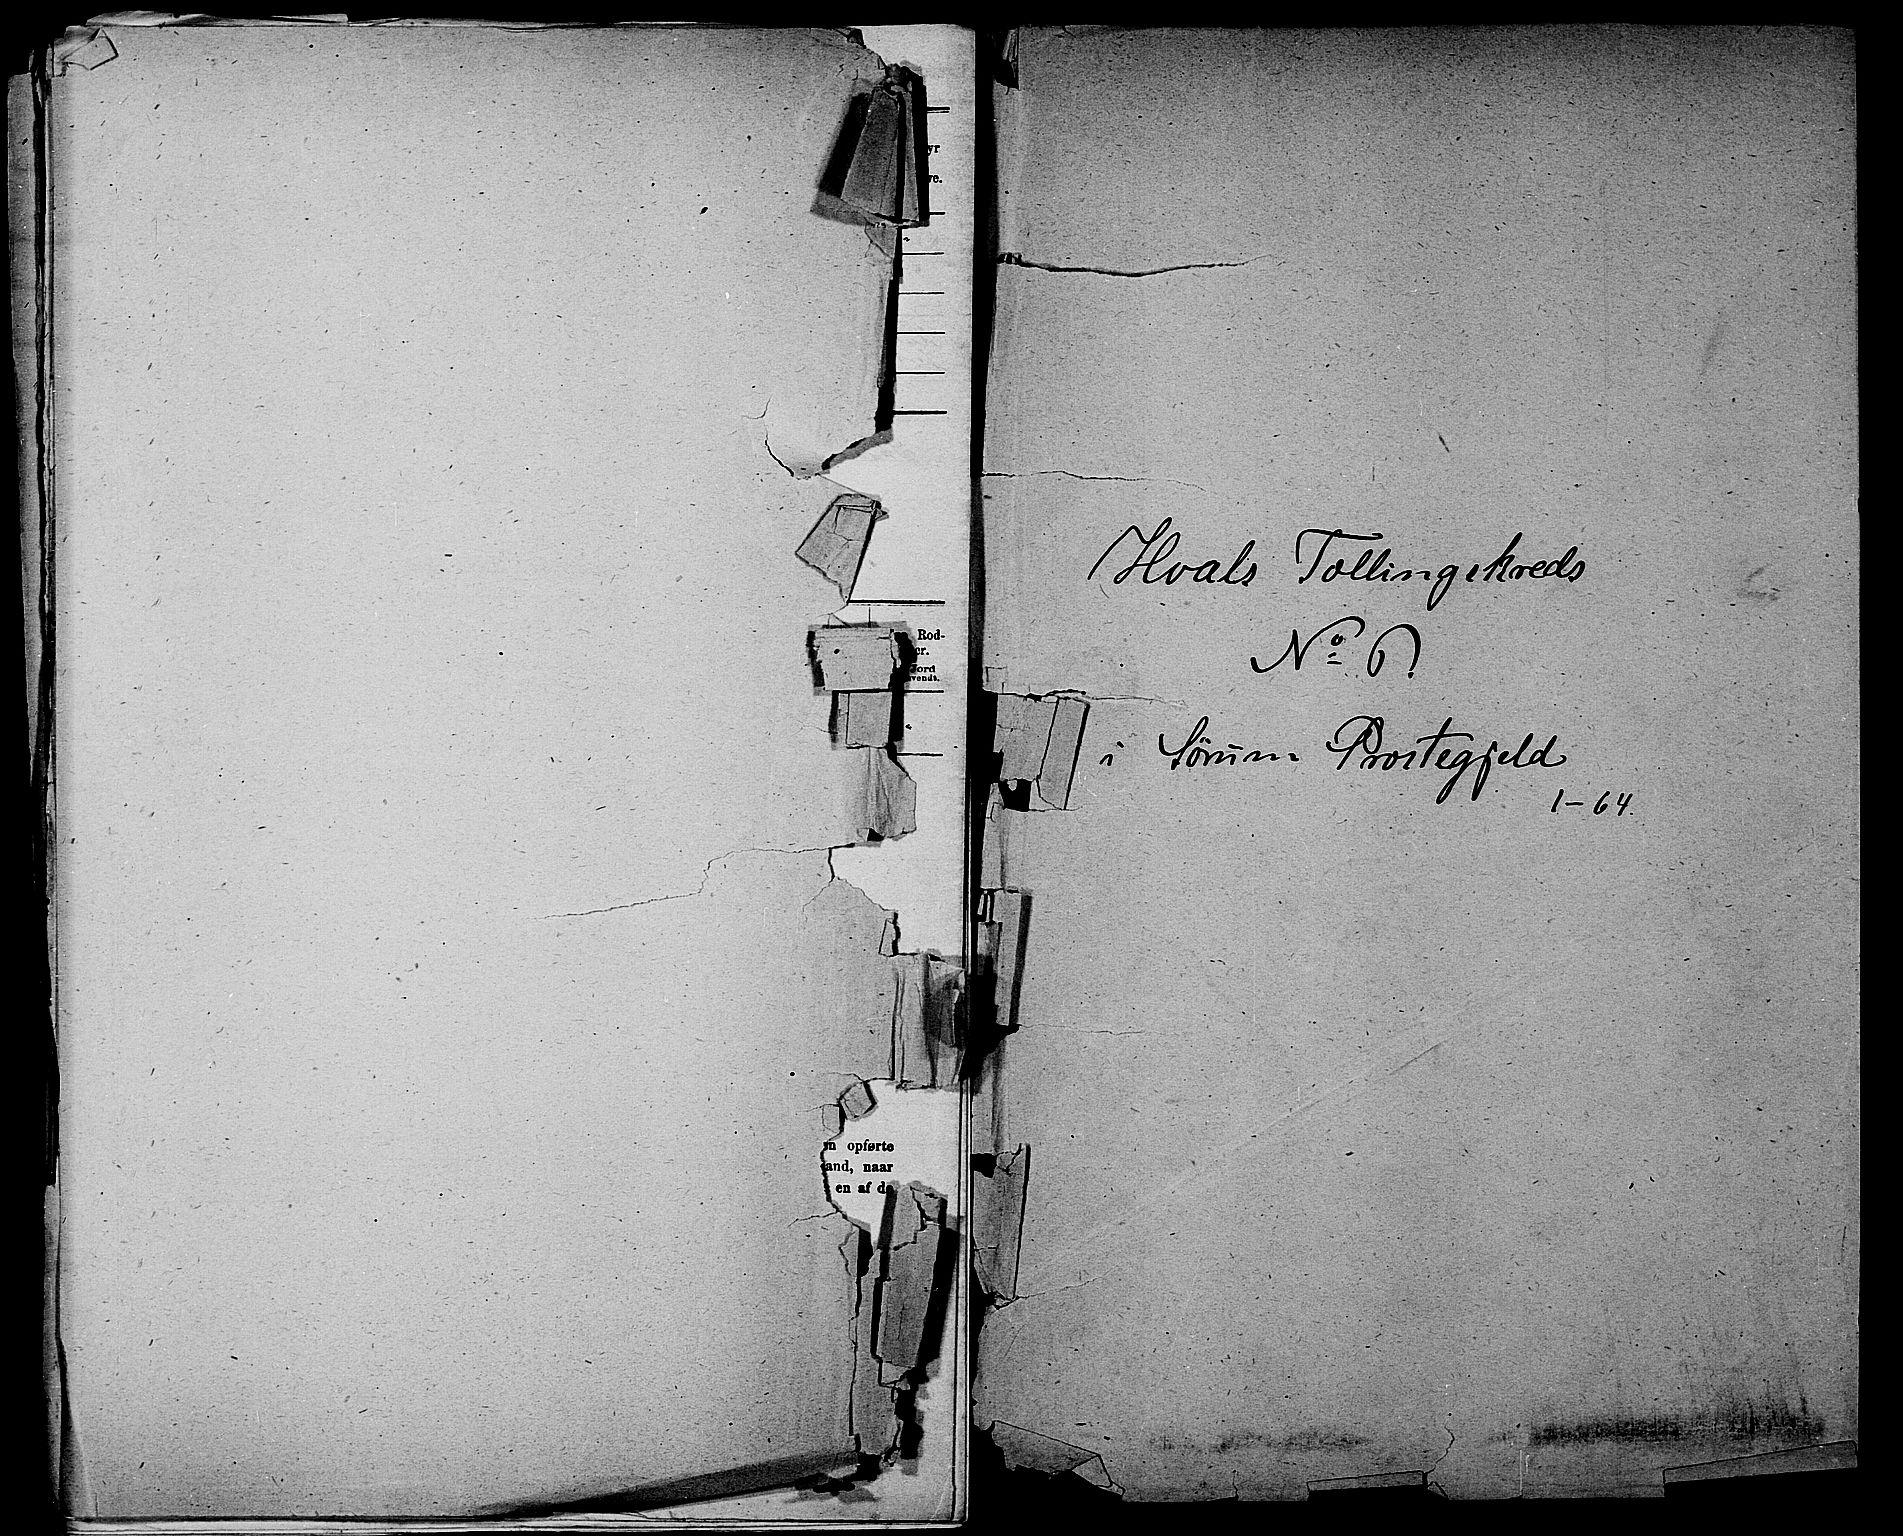 yr
ve.
Rod-
er.
Jord
vendt.
n opførte
and, naar
en af de
Hvals Tællingskreds
No 6
i Sørum Prostegjeld
1-64.